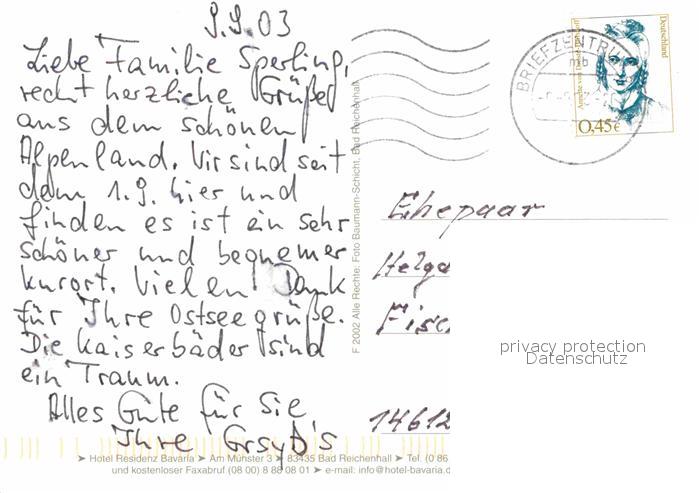 9.9.03
Liebe Familie Sperling,
recht herzliche Grüße
aus dem schönen
Alpenland. Wir sind seit
dem 1.9. hier und
finden es ist ein sehr
schöner und bequemer
Kurort. Vielen Dank
für Ihre Ostseegrüße.
Die Kaiserbäder sind
ein Traum.
Alles Gute für Sie
Ihre
➤ Hotel Residenz Bavaria ➤ Am Münster 3 ➤ 83435 Bad Reichenhall ➤ Tel. (0 86
und kostenloser Faxabruf (08 00) 8 88 08 01 ➤ e-mail: info@hotel-bavaria.c
F 2002 Alle Rechte: Foto Baumann-Schicht, Bad Reichenhall
BRIEFZENTRUM
mb
Deutschland
0,45€
Ehepaar
Helga
Fisc
14612
privacy protection
Datenschutz